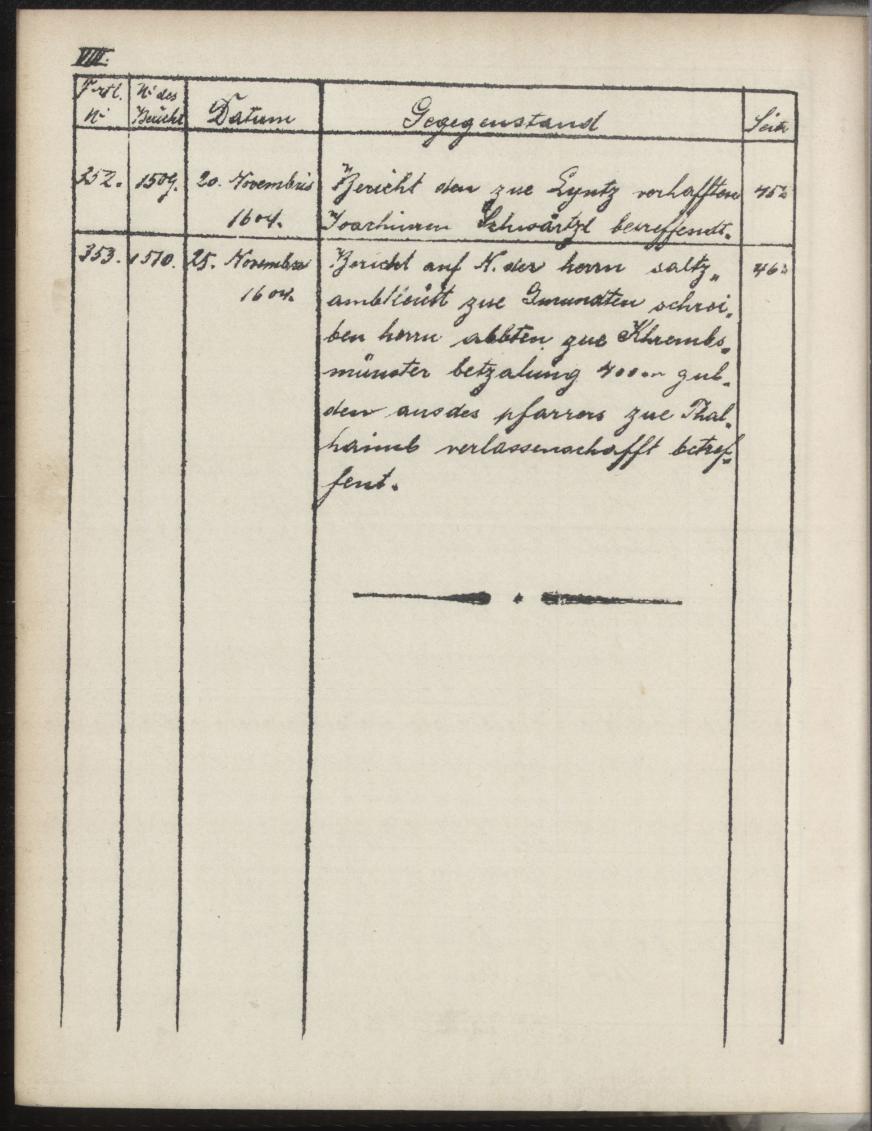 VIII.
Frtl. No des Datum Gegegenstand Seite
No Bericht
352. 1509. 20. Novembris Bericht den zue Lyntz verhafften 452
1604. Joachimen Schwärtzl betreffendt.
353. 1510. 25. Novembris Bericht auf N. der herrn saltz„ 463
1604. ambtleütt zue Gmundten schrei„
ben herrn abbten zue Khrembs„
münster betzalung gul„
den aus des pfarrers zue Thal„
haimb verlassenschafft betref„
fent.